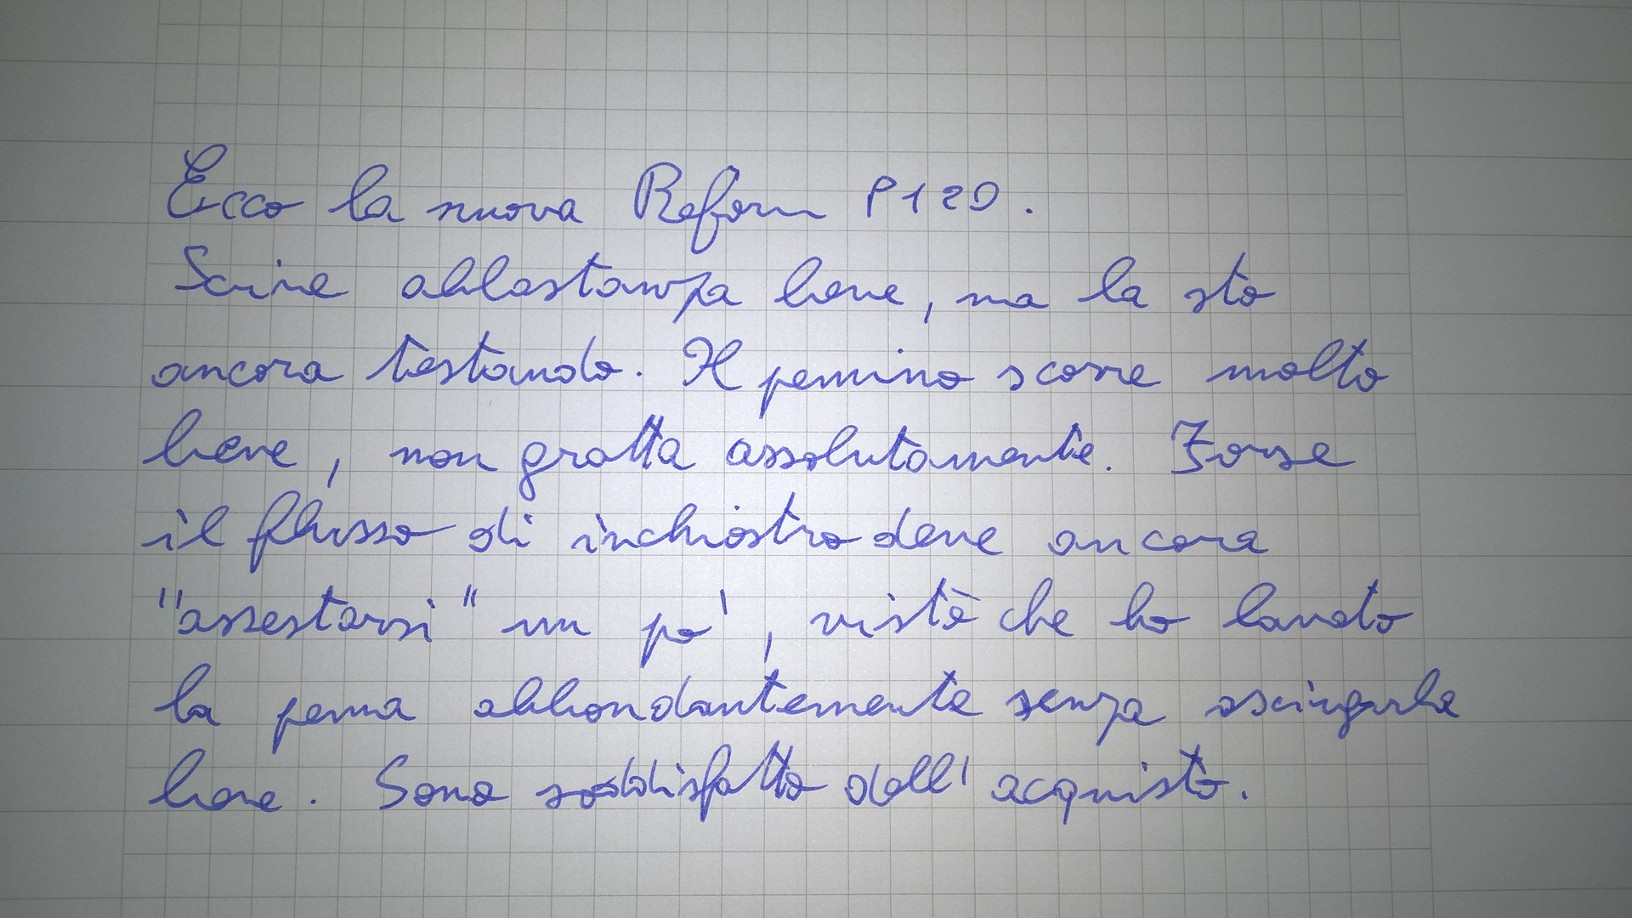 Ecco la nuova Reform P120.
Scrive abbastanza bene, ma la sto
ancora testando. Il pennino scorre molto
bene, non gratta assolutamente. Forse
il flusso di inchiostro deve ancora
"assestarsi" un po', visto che ho lavato
la penna abbondantemente senza asciugarla
bene. Sono soddisfatto dell'acquisto.